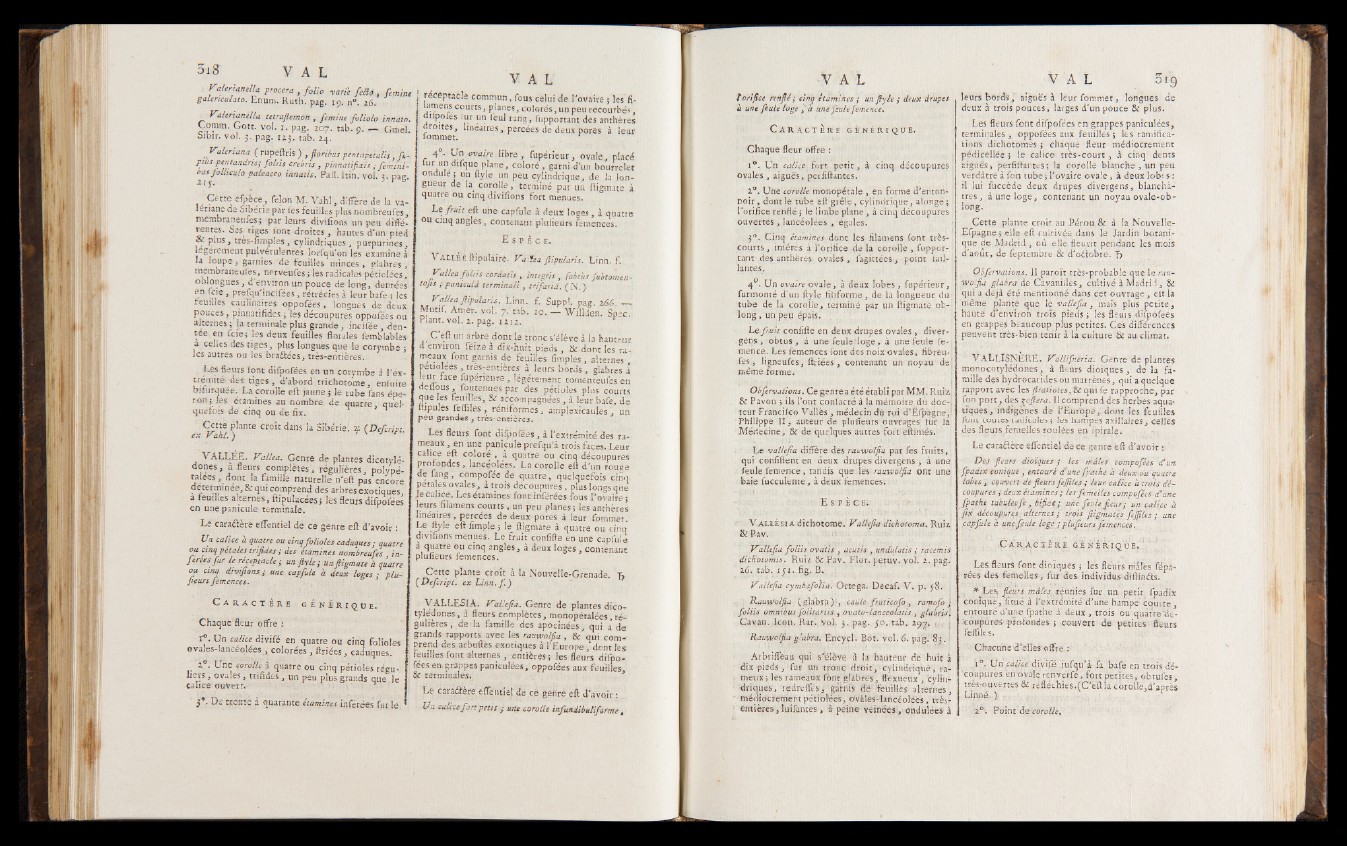 318 V A L
Valerianella procera, folio varie secto, semine
galericulato. Enum. Ruth. pag. 19. n°. 26.
Valerianella tetraslemon, semine foliolo innato.
Comm. Gott. vol. 1. pag. 207. tab. 9. — Gmel.
Sibir. vol. 3. pag. 123. tab. 24.
Valeriana (rupestris), floribus pentapetalis,
pentandris; foliis crebris, pinnatifidis, semini-
bus folliculo paleaceo innatis. Pall. Itin. vol. 3. pag.
215.
Cette espèce, selon M. Vahl, diffère de la va-
lériane de Sibérie par ses feuilles plus nombreuses,
membraneuses; par leurs divisions un peu diffé-
rentes. Ses tiges sont droites, hautes d'un pied
& plus, très-simples, cylindriques, purpurines,
légérement pulvérulentes lorsqu'on les examine à
la loupe, garnies de feuilles minces, glabres,
membraneuses, nerveuses; les radicales pétiolées,
oblongues, d'environ un pouce de long, dentées
en scie, presqu'incisées, rétrécies à leur base; les
feuilles caulinaires opposées, longues de deux
pouces, pinnatifides; les découpures opposées ou
alternes; la terminale plus grande, incisée, den-
tée en scie; les deux feuilles florales semblables
à celles des tiges, plus longues que le corymbe;
les autres ou les bractées, très-entières.
Les fleurs sont disposées en un corymbe à l'ex-
trémité des tiges, d'abord trichotome, ensuite
bifurquée. La corolle est jaune; le tube sans épe-
ron; les étamines au nombre de quatre, quel-
quefois de cinq ou de six.
Cette plante croît dans la Sibérie. ♃ (Descript.
ex Vahl.)
VALLÉE. Vallea. Genre de plantes dicotylé-
dones, à fleurs complètes, régulières, polypé-
talées, dont la famille naturelle n'est pas encore
déterminée, & qui comprend des arbres exotiques,
à feuilles alternes, stipulacées; les fleurs disposées
en une panicule terminale.
Le caractère essentiel de ce genre est d'avoir :
Un calice à quatre ou cinq folioles caduques; quatre
ou cinq pétales trifides; des étamines nombreuses, in-
sérées sur le réceptacle; un style; un stigmate à quatre
ou cinq divisions; une capsule à deux loges; plu-
sieurs semences.
CARACTÈRE GÉNÉRIQUE.
Chaque fleur offre :
1°. Un calice divisé en quatre ou cinq folioles
ovales-lancéolées, colorées, striées, caduques.
2°. Une corolle à quatre ou cinq pétioles régu-
liers, ovales, trifides, un peu plus grands que le
calice ouvert.
3°. De trente à quarante étamines insérées sur le
V A L
réceptacle commun, sous celui de l'ovaire; les fi-
lamens courts, planes, colorés, un peu recourbés,
disposés sur un seul rang, supportant des anthères
droites, linéaires, percées de deux pores à leur
sommet.
4°. Un ovaire libre, supérieur, ovale, placé
sur un disque plane, coloré, garni d'un bourrelet
ondulé; un style un peu cylindrique, de la lon-
gueur de la corolle, terminé par un stigmate à
quatre ou cinq divisions fort menues.
Le fruit est une capsule à deux loges, à quatre
ou cinq angles, contenant plusieurs semences.
ESPÈCE.
VALLÉE stipulaire. Vallea stipularis. Linn. f.
Vallea foliis cordatis, integris, subtus subtomen-
tosis; paniculâ terminali, trifariâ. (N.)
Vallea stipularis. Linn. f. Suppl. pag. 266. —
Mutis. Amér. vol. 7. tab. 10. — Willden. Spec.
Plant. vol. 2. pag. 1212.
C'est un arbre dont le tronc s'élève à la hauteur
d'environ seize à dix-huit pieds, & dont les ra-
meaux sont garnis de feuilles simples, alternes,
pétiolées, très-entières à leurs bords, glabres à
leur face supérieure, légérement tomenteuses en
dessous, soutenues par des pétioles plus courts
que les feuilles, & accompagnées, à leur base, de
stipules sessiles, réniformes, amplexicaules, un
peu grandes, très-entières.
Les fleurs sont disposées, à l'extrémité des ra-
meaux, en une panicule presqu'à trois faces. Leur
calice est coloré, à quatre ou cinq découpures
profondes, lancéolées. La corolle est d'un rouge
de sang, composée de quatre, quelquefois cinq
pétales ovales, à trois découpures, plus longs que
le calice. Les étamines sont insérées sous l'ovaire;
leurs filamens courts, un peu planes; les anthères
linéaires, percées de deux pores à leur sommet.
Le style est simple; le stigmate à quatre ou cinq
divisions menues. Le fruit consiste en une capsule
à quatre ou cinq angles, à deux loges, contenant
plusieurs semences.
Cette plante croît à la Nouvelle-Grenade. ♄
(Descript. ex Linn. f.)
VALLESIA. Vallesia. Genre de plantes dico-
tylédones, à fleurs complètes, monopétalées, ré-
gulières, de la famille des apocinées, qui a de
grands rapports avec les rauwolfia, & qui com-
prend des arbustes exotiques à l'Europe, dont les
feuilles sont alternes, entières; les fleurs dispo-
sées en grappes paniculées, opposées aux feuilles,
& terminales.
Le caractère essentiel de ce genre est d'avoir :
Un calice fort petit; une corolle infundibuliforme,
V A L
l'orifice renflé; cinq étamines; un style; deux drupes
à une seule loge, à une seule semence.
CARACTÈRE GÉNÉRIQUE.
Chaque fleur offre :
1°. Un calice fort petit, à cinq découpures
ovales, aiguës, persistantes.
2°. Une corolle monopétale, en forme d'enton-
noir, dont le tube est grêle, cylindrique, alongé;
l'orifice renflé; le limbe plane, à cinq découpures
ouvertes, lancéolées, égales.
3°. Cinq étamines dont les filamens sont très-
courts, insérés à l'orifice de la corolle, suppor-
tant des anthères ovales, sagittées, point sail-
lantes.
4°. Un ovaire ovale, à deux lobes, supérieur,
surmonté d'un style filiforme, de la longueur du
tube de la corolle, terminé par un stigmate ob-
long, un peu épais.
Le fruit consiste en deux drupes ovales, diver-
gens, obtus, à une seule loge, à une seule se-
mence. Les semences sont des noix ovales, fibreu-
ses, ligneuses, striées, contenant un noyau de
même forme.
Observations. Ce genre a été établi par MM. Ruiz
& Pavon; ils l'ont consacré à la mémoire du doc-
teur Francisco Vallès, médecin du roi d'Espagne,
Philippe II, auteur de plusieurs ouvrages sur la
Médecine, & de quelques autres fort estimés.
Le vallesia diffère des rauwolfia par ses fruits,
qui consistent en deux drupes divergens, à une
seule semence, tandis que les rauwolfia ont une
baie succulente, à deux semences.
ESPÈCE.
VALLESIA dichotome. Vallesia dichotoma. Ruiz
& Pav.
Vallesia foliis ovatis, acutis, undulatis; racemis
dichotomis. Ruiz & Pav. Flor. peruv. vol. 2. pag.
26. tab. 151. fig. B.
Vallesia cymbæfolia. Ortega. Decaf. V. p. 58.
Rauwolfia (glabra), caule fruticoso, ramoso;
foliis omnibus solitariis, ovato-lanceolatis, glabris.
Cavan. Icon. Rar. vol. 3. pag. 50. tab. 297.
Rauwolfia glabra. Encycl. Bot. vol. 6. pag. 83.
Arbrisseau qui s'élève à la hauteur de huit à
dix pieds, sur un tronc droit, cylindrique, ra-
meux; les rameaux sont glabres, flexueux, cylin-
driques, redressés, garnis de feuilles alternes,
médiocrement pétiolées, ovales-lancéolées, très-
entières, luisantes, à peine veinées, ondulées à
V A L 319
leurs bords, aiguës à leur sommet, longues de
deux à trois pouces, larges d'un pouce & plus.
Les fleurs sont disposées en grappes paniculées,
terminales, opposées aux feuilles; les ramifica-
tions dichotomes; chaque fleur médiocrement
pédicellée; le calice très-court, à cinq dents
aiguës, persistantes; la corolle blanche, un peu
verdâtre à son tube; l'ovaire ovale, à deux lobes:
il lui succède deux drupes divergens, blanchâ-
tres, à une loge, contenant un noyau ovale-ob-
long.
Cette plante croît au Pérou & à la Nouvelle-
Espagne; elle est cultivée dans le Jardin botani-
que de Madrid, où elle fleurit pendant les mois
d'août, de septembre & d'octobre. ♄
Observations. Il paroît très-probable que le rau-
wolfia glabra de Cavanilles, cultivé à Madrid, &
qui a déjà été mentionné dans cet ouvrage, est la
même plante que le vallesia, mais plus petite,
haute d'environ trois pieds; les fleurs disposées
en grappes beaucoup plus petites. Ces différences
peuvent très-bien tenir à la culture & au climat.
VALLISNÈRE. Vallisneria. Genre de plantes
monocotylédones, à fleurs dioiques, de la fa-
mille des hydrocarides ou morrènes, qui a quelque
rapport avec les stratiotes, & qui se rapproche, par
son port, des zostera. Il comprend des herbes aqua-
tiques, indigènes de l'Europe, dont les feuilles
sont toutes radicales; les hampes axillaires, celles
des fleurs femelles roulées en spirale.
Le caractère essentiel de ce genre est d'avoir :
Des fleurs dioiques; les mâles composées d'un
spadix conique, entouré d'une spathe à deux ou quatre
lobes, couvert de fleurs sessiles; leur calice à trois dé-
coupures; deux étamines; les femelles composées d'une
spathe tubuleuse, bifide; une seule fleur; un calice à
six découpures alternes; trois stigmates sessiles; une
capsule à une seule loge; plusieurs semences.
CARACTÈRE GÉNÉRIQUE.
Les fleurs sont dioiques; les fleurs mâles sépa-
rées des femelles, sur des individus distincts.
* Les fleurs mâles réunies sur un petit spadix
conique, situé à l'extrémité d'une hampe courte,
entouré d'une spathe à deux, trois ou quatre dé-
coupures profondes; couvert de petites fleurs
sessiles.
Chacune d'elles offre :
1°. Un calice divisé jusqu'à sa base en trois dé-
coupures en ovale renversé, fort petites, obtuses,
très-ouvertes & réfléchies. (C'est la corolle, d'après
Linné.)
2°. Point de corolle.